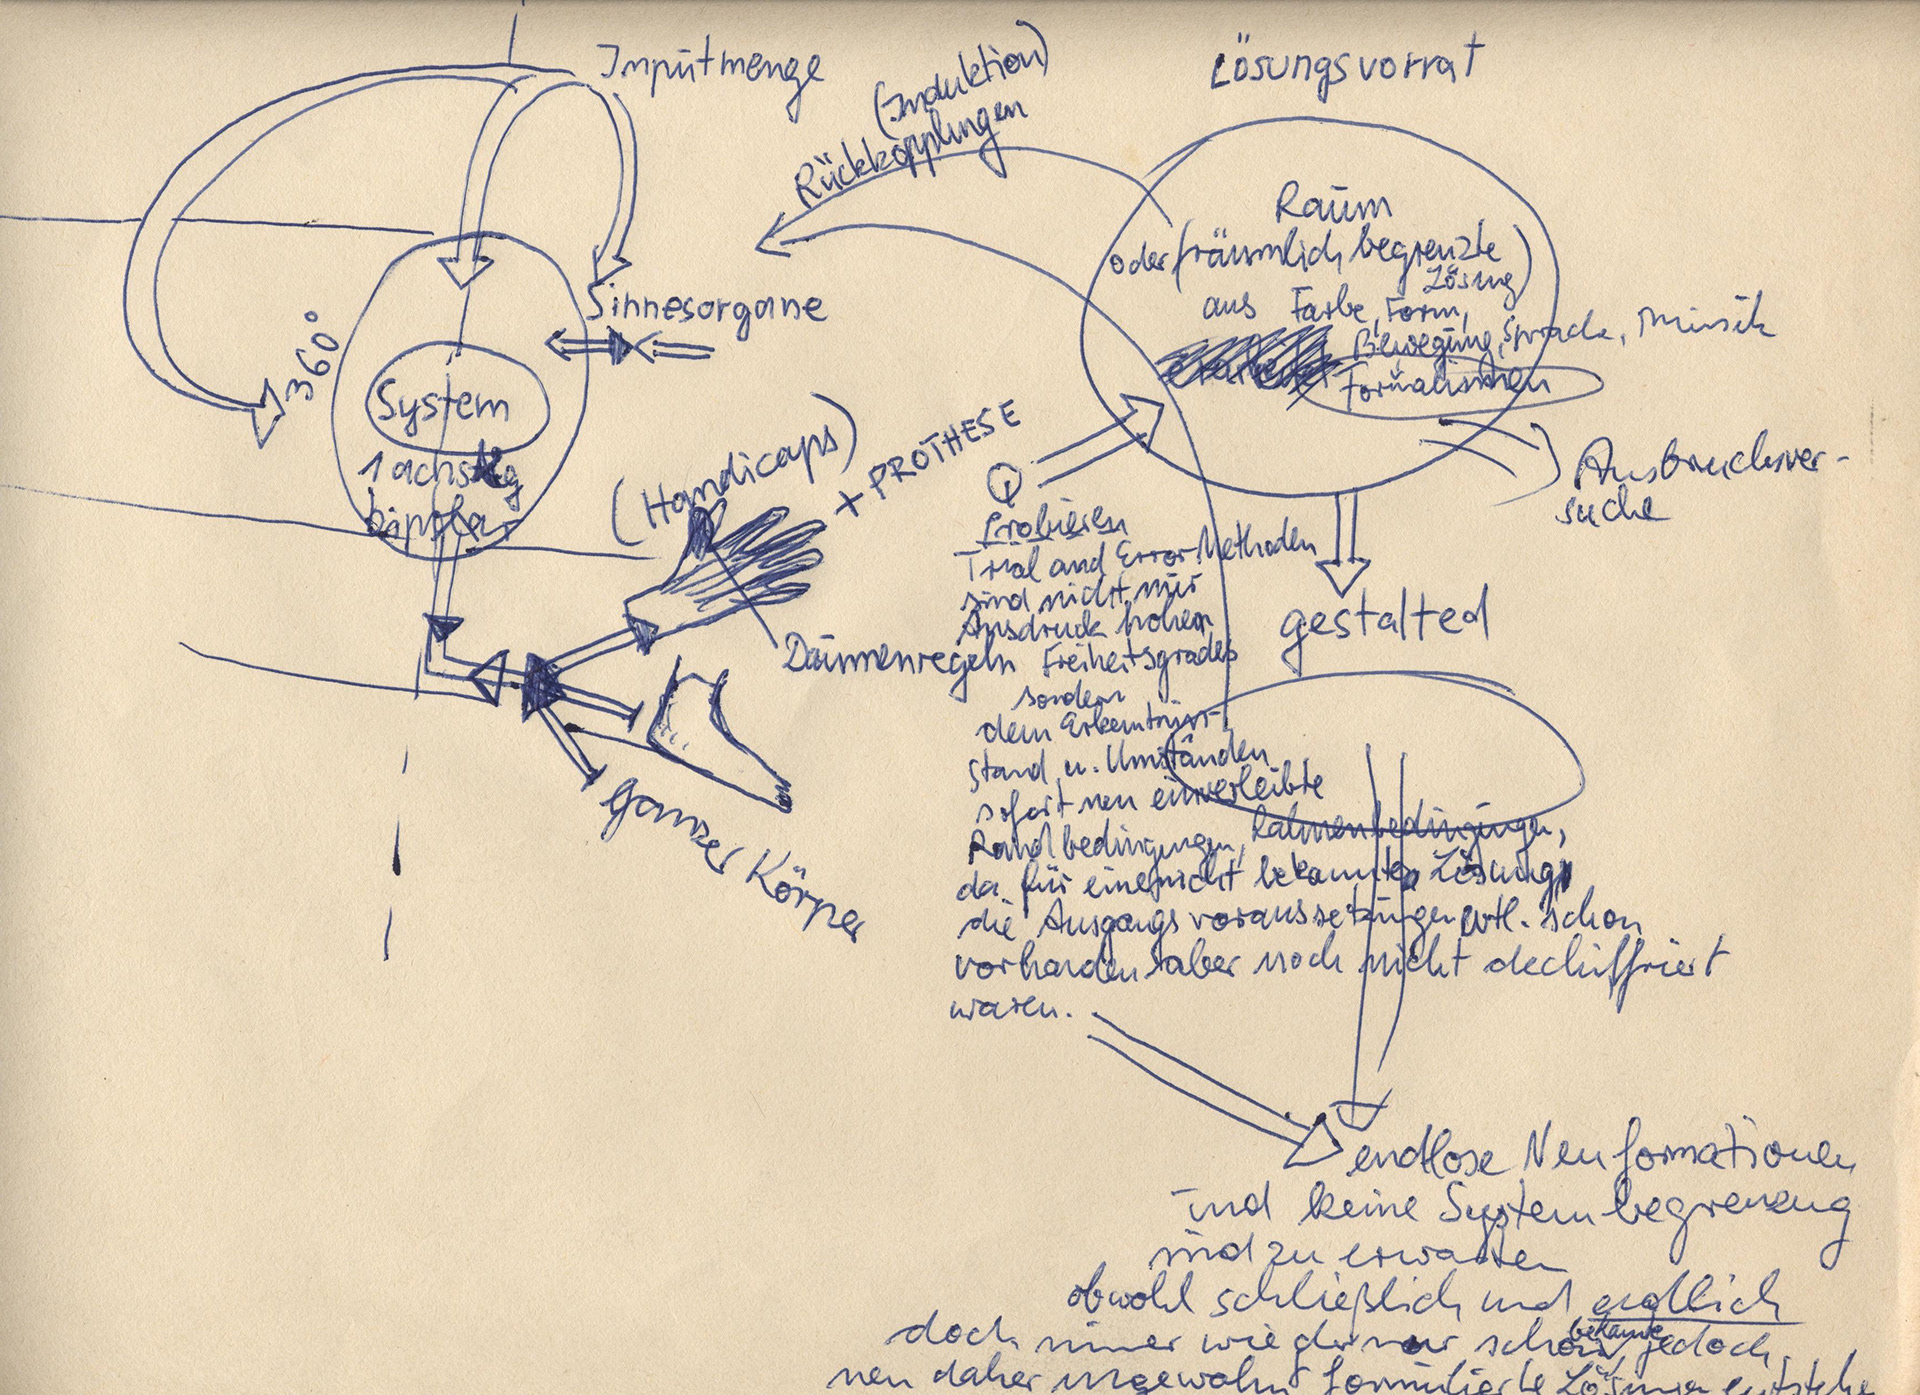 Inputmenge
Lösungsvorrat
(Induktion)
Rückkopplungen
360°
Sinnesorgane
System
1 achsig
bipolar
(Handicaps)
+ PROTHESE
Daumenregeln
ganzer Körper
Raum
oder (räumlich begrenzte
Lösung)
aus Farbe, Form,
Bewegung, Sprache, Musik
Formalismen
Ausbruchsver-
suche
gestalted
Probieren
Trial and Error Methoden
sind nicht nur
Ausdruck hohen
Freiheitsgrades
sondern
dem Erkenntnis-
stand u. Umständen
sofort neu einverleibte
Randbedingungen, Rahmenbedingungen,
da für eine nicht bekannte Lösung
die Ausgangsvoraussetzungen evtl. schon
vorhanden aber noch nicht dechiffriert
waren.
endlose Neuformationen
und keine Systembegrenzug
sind zu erwarten
obwohl schließlich und endlich
doch immer wieder nur schon bekannte jedoch
neu daher ungewohnt formulierte Lösungen